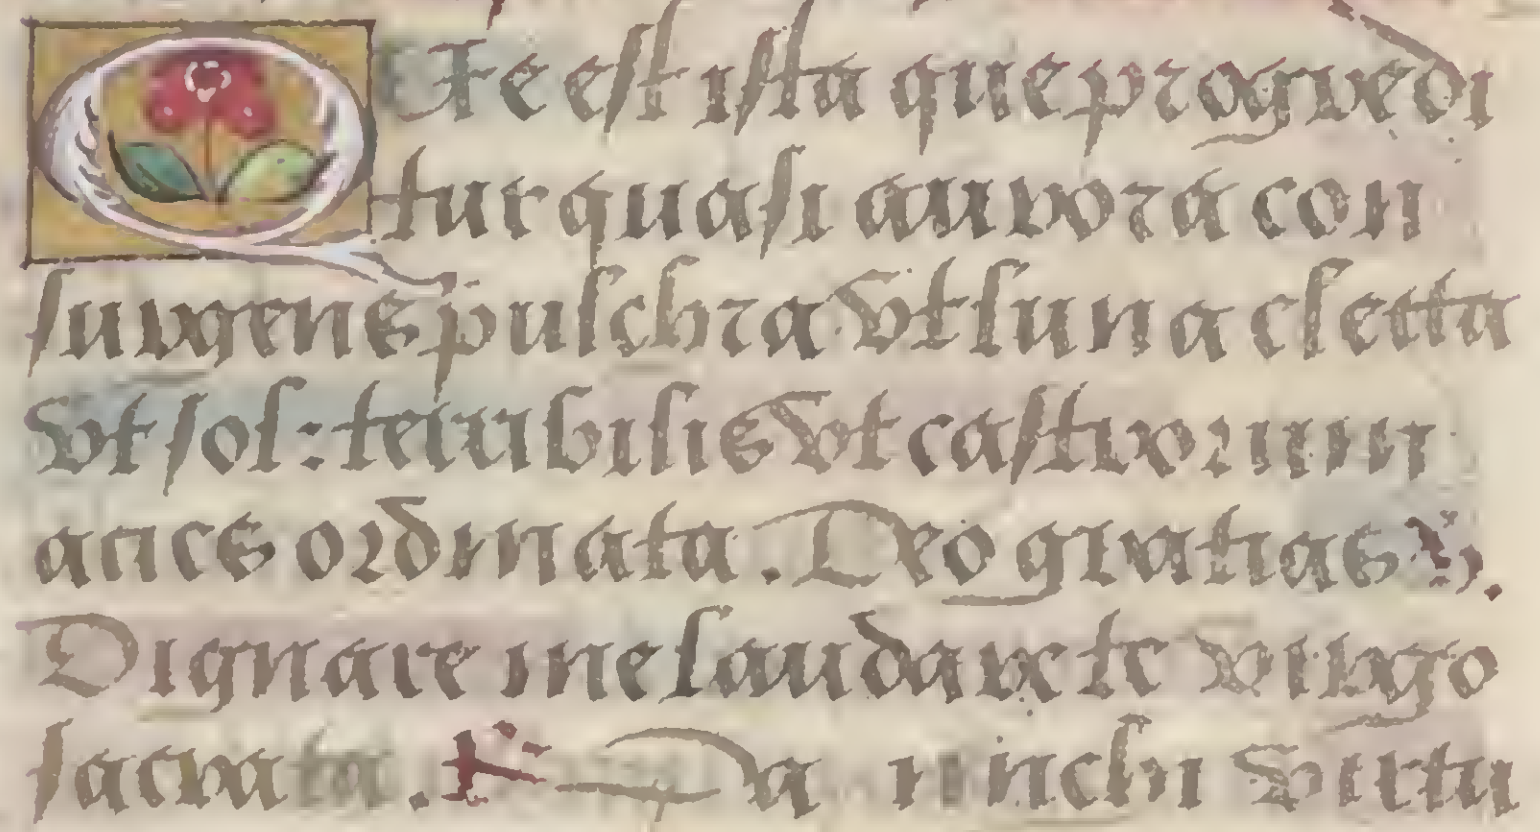 Que est ista que progredi
tur quasi aurora con
surgens pulchra vt luna electa
vt sol: terribilis vt castrorum
acies ordinata. Deo gratias ℣.
Dignare me laudare te virgo
sacrata. ℟ Da michi virtu